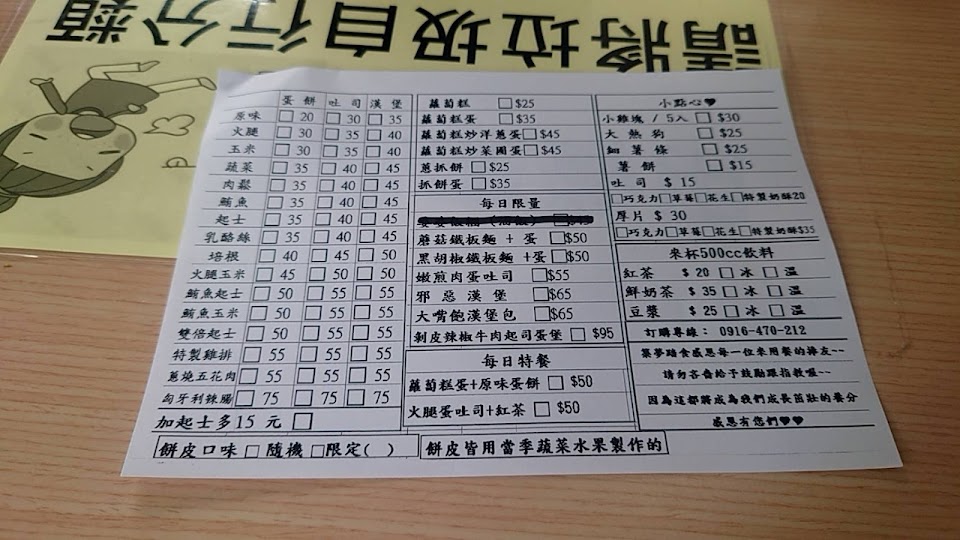 請將垃圾自行分類
蛋餅 吐司 漢堡
原味 □ 20 □ 30 □ 35
火腿 □ 30 □ 35 □ 40
玉米 □ 30 □ 35 □ 40
蔬菜 □ 35 □ 40 □ 45
肉鬆 □ 35 □ 40 □ 45
鮪魚 □ 35 □ 40 □ 45
起士 □ 35 □ 40 □ 45
乳酪絲 □ 35 □ 40 □ 45
培根 □ 40 □ 45 □ 50
火腿玉米 □ 45 □ 50 □ 50
鮪魚起士 □ 50 □ 55 □ 55
鮪魚玉米 □ 50 □ 55 □ 55
雙倍起士 □ 50 □ 55 □ 55
特製雞排 □ 55 □ 55 □ 55
蔥燒五花肉 □ 55 □ 55 □ 55
匈牙利辣腸 □ 75 □ 75 □ 75
加起士多15 元 □
餅皮口味 □ 隨機 □限定( )
蘿蔔糕 □ $25
蘿蔔糕蛋 □ $35
蘿蔔糕炒洋蔥蛋□$45
蘿蔔糕炒菜圃蛋□$45
蔥抓餅 □$25
抓餅蛋 □$35
每日限量
蘑菇鐵板麵 + 蛋 □$50
黑胡椒鐵板麵 +蛋□$50
嫩煎肉蛋吐司 □$55
邪惡漢堡 □$65
大嘴飽漢堡包 □$65
剝皮辣椒牛肉起司蛋堡 □ $95
每日特餐
蘿蔔糕蛋+原味蛋餅 □ $50
火腿蛋吐司+紅茶 □ $50
餅皮皆用當季蔬菜水果製作的
小點心♥
小雞塊 / 5入 □ $30
大熱狗 □ $25
細薯條 □ $25
薯餅 □ $15
吐司 $ 15
□巧克力□草莓□花生□特製奶酥20
厚片 $ 30
□巧克力□草莓□花生□特製奶酥$35
來杯500cc飲料
紅茶 $ 20 □ 冰 □ 溫
鮮奶茶 $ 35 □ 冰 □ 溫
豆漿 $ 25 □ 冰 □ 溫
訂購專線: 0916-470-212
築夢踏食感恩每一位來用餐的捧友~~
請勿吝嗇給予鼓勵跟指教喔~~
因為這都將成為我們成長茁壯的養分
感恩有您們♥♥